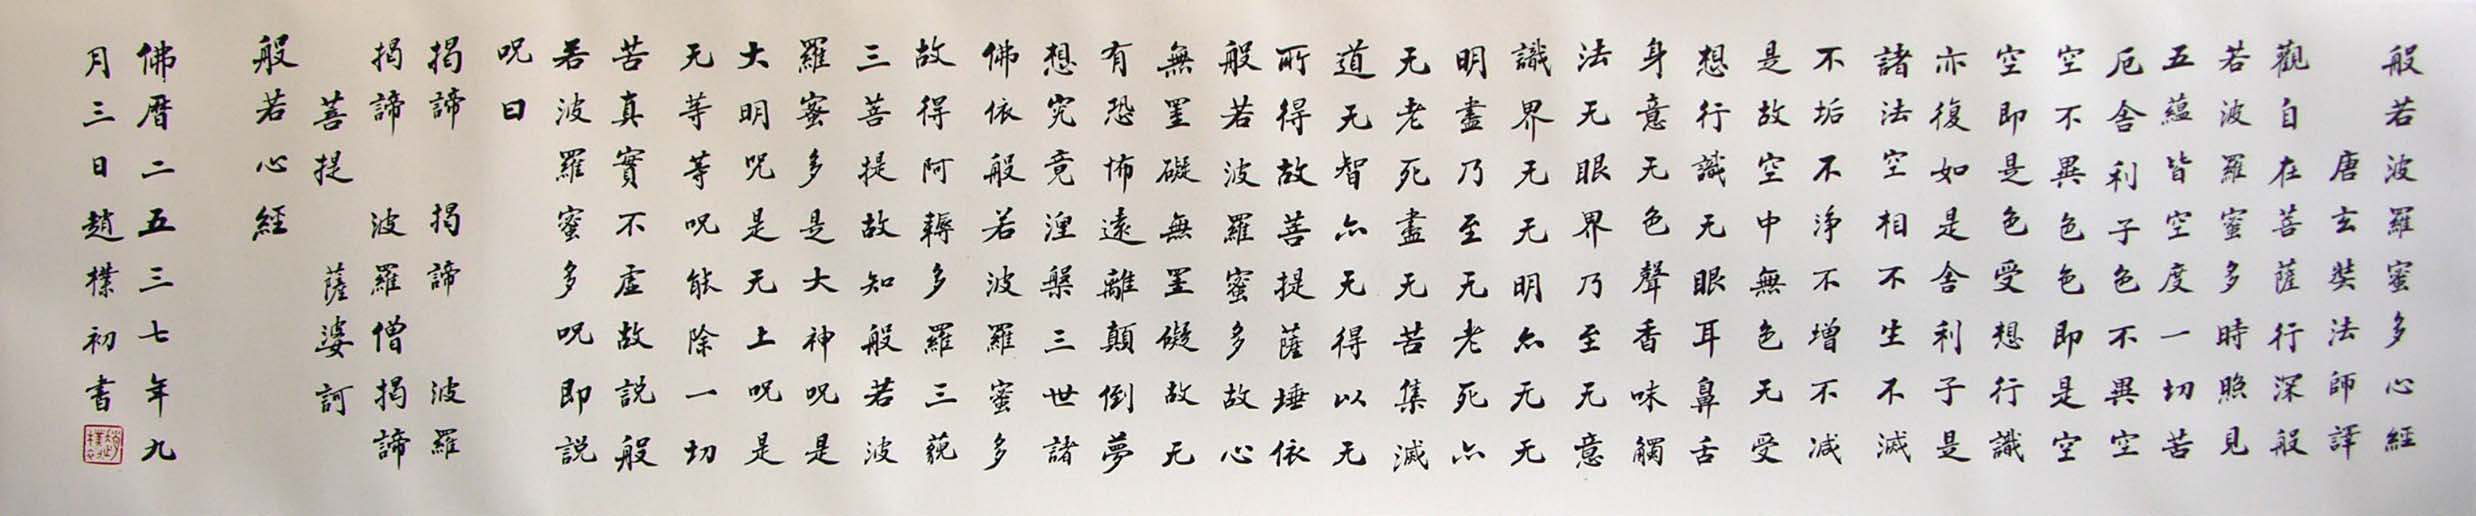 般若波羅蜜多心經
唐玄奘法師譯
觀自在菩薩行深般
若波羅蜜多時照見
五蘊皆空度一切苦
厄舍利子色不異空
空不異色色即是空
空即是色受想行識
亦復如是舍利子是
諸法空相不生不滅
不垢不淨不增不减
是故空中無色无受
想行識无眼耳鼻舌
身意无色聲香味觸
法无眼界乃至无意
識界无无明亦无无
明盡乃至无老死亦
无老死盡无苦集滅
道无智亦无得以无
所得故菩提薩埵依
般若波羅蜜多故心
無罣礙無罣礙故无
有恐怖遠離顛倒夢
想究竟涅槃三世諸
佛依般若波羅蜜多
故得阿耨多羅三藐
三菩提故知般若波
羅蜜多是大神呪是
大明呪是无上呪是
无等等呪能除一切
苦真實不虛故説般
若波羅蜜多呪即説
呪曰
揭諦 揭諦 波羅
揭諦 波羅僧揭諦
菩提 薩婆訶
般若心經
佛曆二五三七年九
月三日趙樸初書